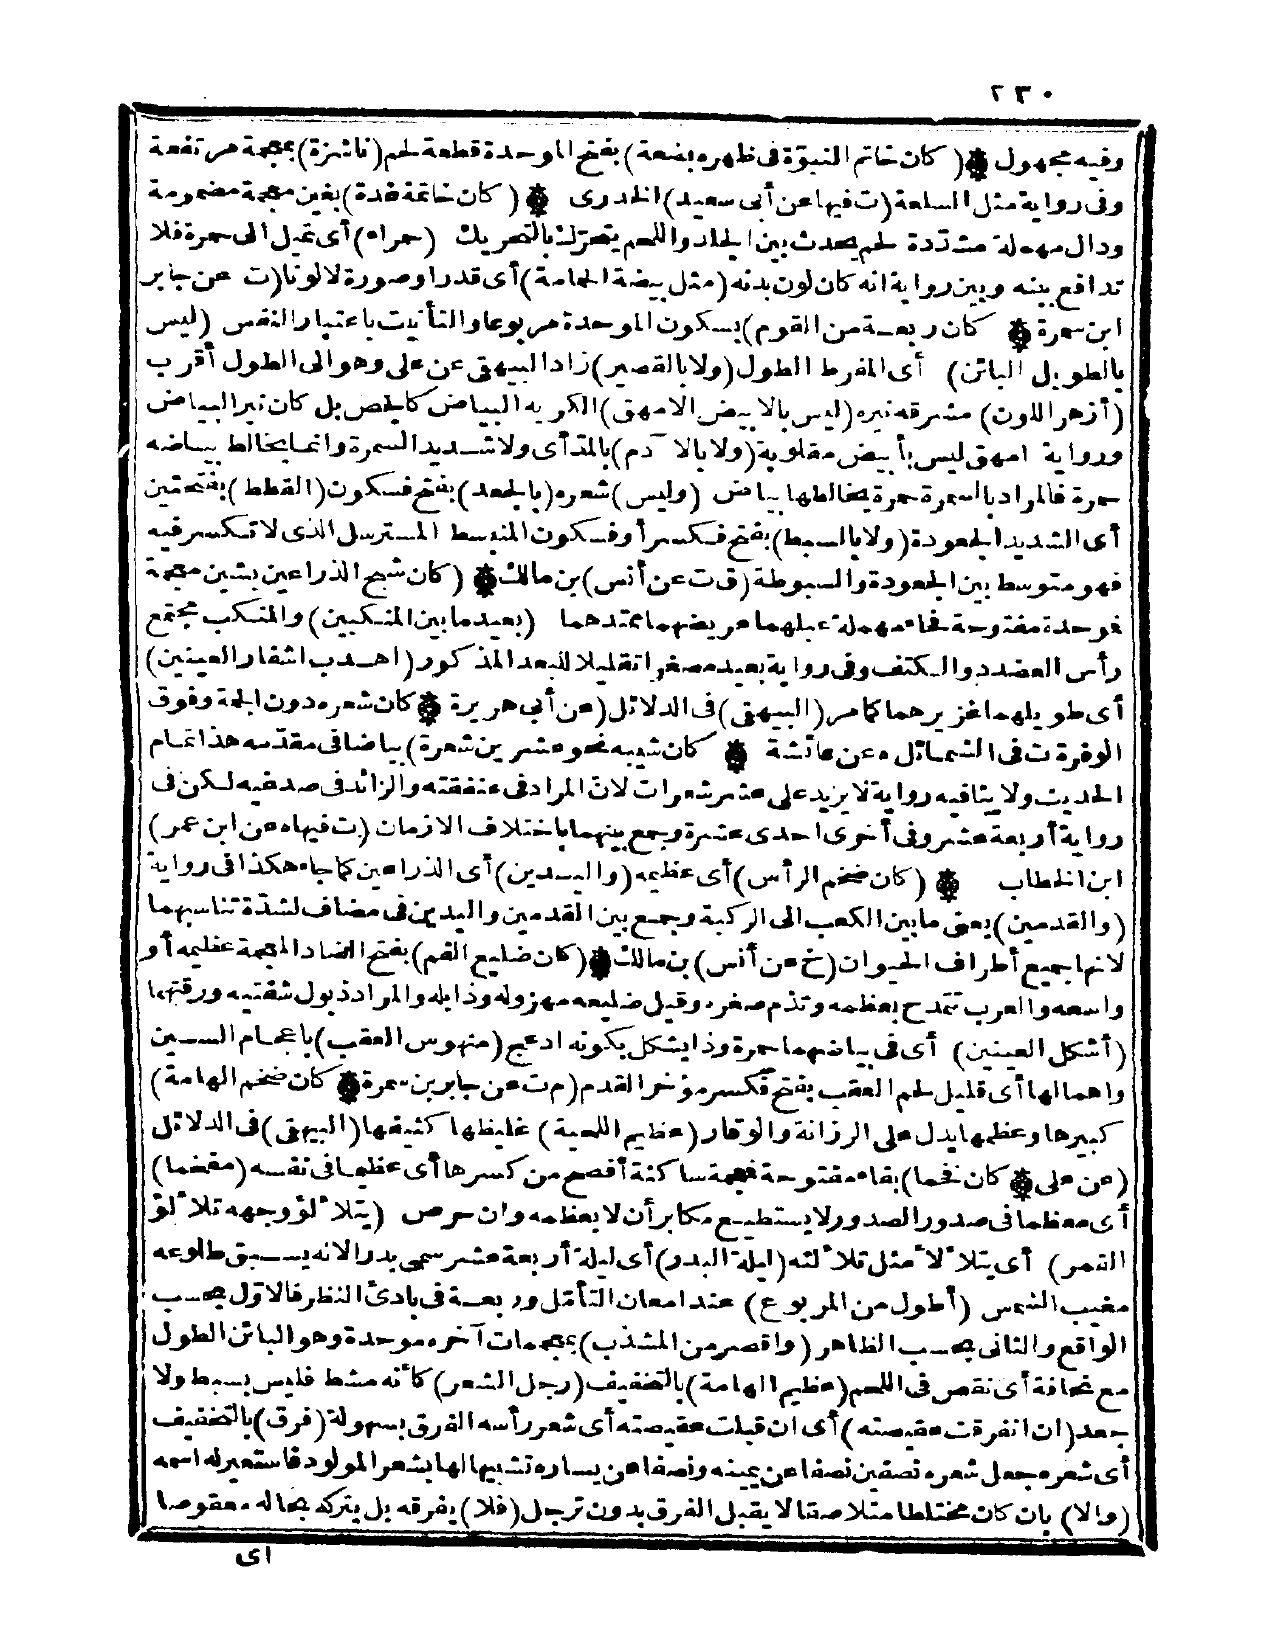 ٢٣٠
وفيه مجهول ۞ (كان خاتم النبوّة فى ظهره بضعة) بفتح الموحدة قطعة لحم (ناشزة) بمعجمة مرتفعة
وفى رواية مثل السلعة (ت فيها عن أبى سعيد) الخدرى ۞ (كان خاتمه غدة) بغين معجمة مضمومة
ودال مهملة مشدّدة لحم يحدث بين الجلد واللحم يتحرّك بالتحريك (حمراء) أى تميل الى حمرة فلا
تدافع بينه وبين رواية انه كان لون بدنه (مثل بيضة الحمامة) أى قدرا وصورة لالونا (ت عن جابر
ابن سمرة ۞ كان ربعة من القوم) بسكون الموحدة مربوعا والتأنيث باعتبار النفس (ليس
بالطويل البائن) أى المفرط الطول (ولا بالقصير) زاد البيهقى عن على وهو الى الطول أقرب
(أزهر اللون) مشرقه نيره (ليس بالابيض الامهق) الكريه البياض كالجص بل كان نير البياض
ورواية امهق ليس بأبيض مقلوبة (ولا بالآدم) بالمدّ أى ولا شديد السمرة وانما يخالط بياضه
حمرة فالمراد بالسمرة حمرة يخالطها بياض (وليس) شعره (بالجعد) بفتح فسكون (القطط) بفتحتين
أى الشديد الجعودة (ولا بالسبط) بفتح فكسر أو فسكون المنبسط المسترسل الذى لا تكسر فيه
فهو متوسط بين الجعودة والسبوطة (ق ت عن أنس) بن مالك ۞ (كان شبح الذراعين بشين معجمة
فموحدة مفتوحة فحاء مهملة عبلهما عريضهما ممتدهما (بعيد ما بين المنكبين) والمنكب مجتمع
رأس العضد والكتف وفى رواية بعيد مصغرا تقليلا للبعد المذكور (اهدب اشفار العينين)
أى طويلهما غزيرهما كما مر (البيهقى) فى الدلائل (عن أبى هريرة ۞ كان شعره دون الجمة وفوق
الوفرة ت فى الشمائل ه عن عائشة ۞ كان شيبه نحو عشرين شعرة) بياضا فى مقدّمه هذا تمام
الحديث ولا ينافيه رواية لا يزيد على عشر شعرات لان المراد فى عنفقته والزائد فى صدغيه لكن فى
رواية أربعة عشر وفى أخرى احدى عشرة وجمع بينهما باختلاف الازمان (ت فيها ه عن ابن عمر)
ابن الخطاب ۞ (كان ضخم الرأس) أى عظيمه (واليدين) أى الذراعين كما جاء هكذا فى رواية
(والقدمين) يعنى ما بين الكعب الى الركبة وجمع بين القدمين واليدين فى مضاف لشدّة تناسبهما
لانها جميع أطراف الحيوان (خ عن أنس) بن مالك ۞ (كان ضليع الفم) بفتح الضاد المعجمة عظيمه أو
واسعه والعرب تتمدح بعظمه وتذم صغره وقيل ضليعه مهزوله وذابله والمراد ذبول شفتيه ورقتهما
(أشكل العينين) أى فى بياضهما حمرة وذا يشكل بكونه ادعج (منهوس العقب) باعجام السين
واهمالها أى قليل لحم العقب بفتح فكسر مؤخر القدم (م ت عن جابر بن سمرة ۞ كان ضخم الهامة)
كبيرها وعظمها يدل على الرزانة والوقار (عظيم اللحية) غليظها كثيفها (البيهقى) فى الدلائل
(عن على ۞ كان فخما) بفاء مفتوحة فمعجمة ساكنة أفصح من كسرها أى عظيما فى نفسه (مفخما)
أى معظما فى صدور الصدور لا يستطيع مكابر أن لا يعظمه وان حرص (يتلألؤ وجهه تلألؤ
القمر) أى يتلألأ مثل تلألئه (ليلة البدر) أى ليلة أربعة عشر سمى بدرا لانه يسبق طلوعه
مغيب الشمس (أطول من المربوع) عند امعان التأمّل وربعة فى بادئ النظر فالاوّل بحسب
الواقع والثانى بحسب الظاهر (واقصر من المشذب) بمعجمات آخره موحدة وهو البائن الطول
مع نحافة أى نقص فى اللحم (عظيم الهامة) بالتخفيف (رجل الشعر) كأنه مشط فليس بسبط ولا
جعد (ان انفرقت عقيصته) أى ان قبلت عقيصته أى شعر رأسه الفرق بسهولة (فرق) بالتخفيف
أى شعره جعل شعره نصفين نصفا عن يمينه ونصفا عن يساره تشبيها لها بشعر المولود فاستعير له اسمه
(والا) بان كان مختلطا متلاصقا لا يقبل الفرق بدون ترجل (فلا) يفرقه بل يتركه بحاله معقوصا
اى